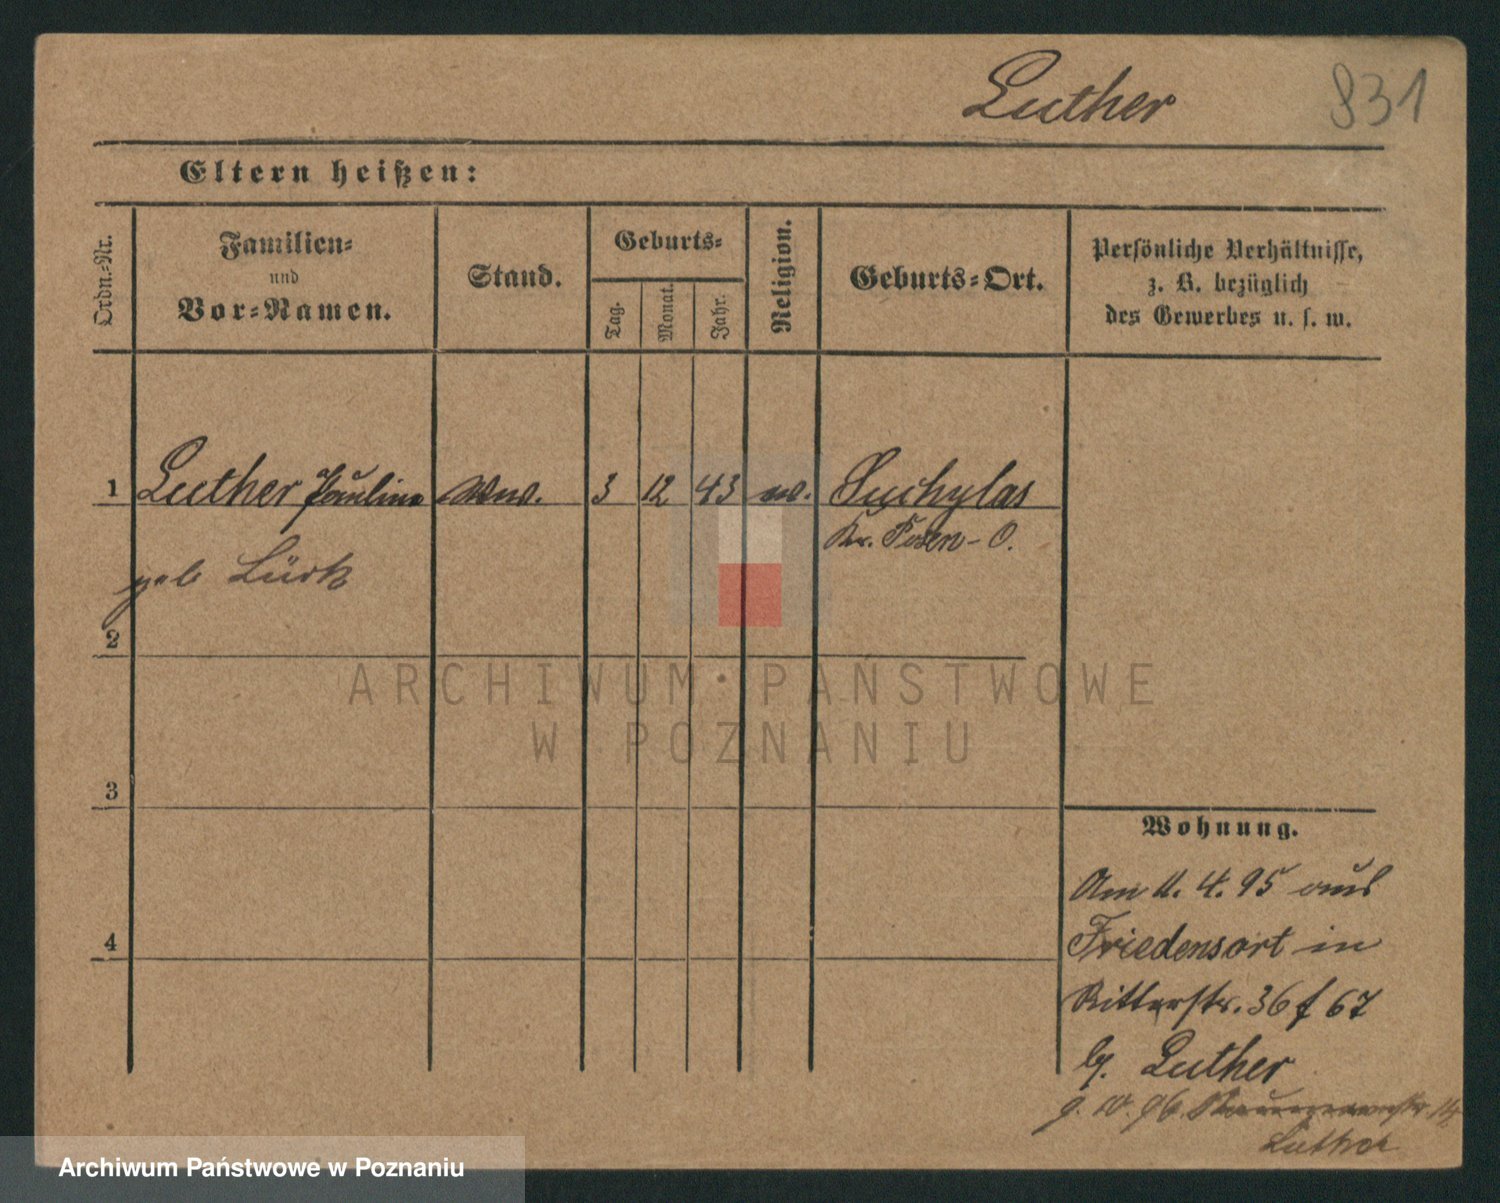 Luther 831
Eltern heißen:
Ordn.-Nr.
Familien-
und
Vor-Namen.
Stand.
Geburts-
Tag.
Monat.
Jahr.
Religion.
Geburts-Ort.
Persönliche Verhältnisse,
z. B. bezüglich
des Gewerbes u. s. w.
1 Luther Pauline Wwe. 3 12 43 ev. Suchylas
Kr. Posen-O.
geb Lürk
2
ARCHIWUM PAŃSTWOWE
W POZNANIU
3
Wohnung.
Am 11. 4. 95 aus
4
Friedensort in
Ritterstr. 36 f 67
b/. Luther
9. 10. 96. 14
Luther
Archiwum Państwowe w Poznaniu